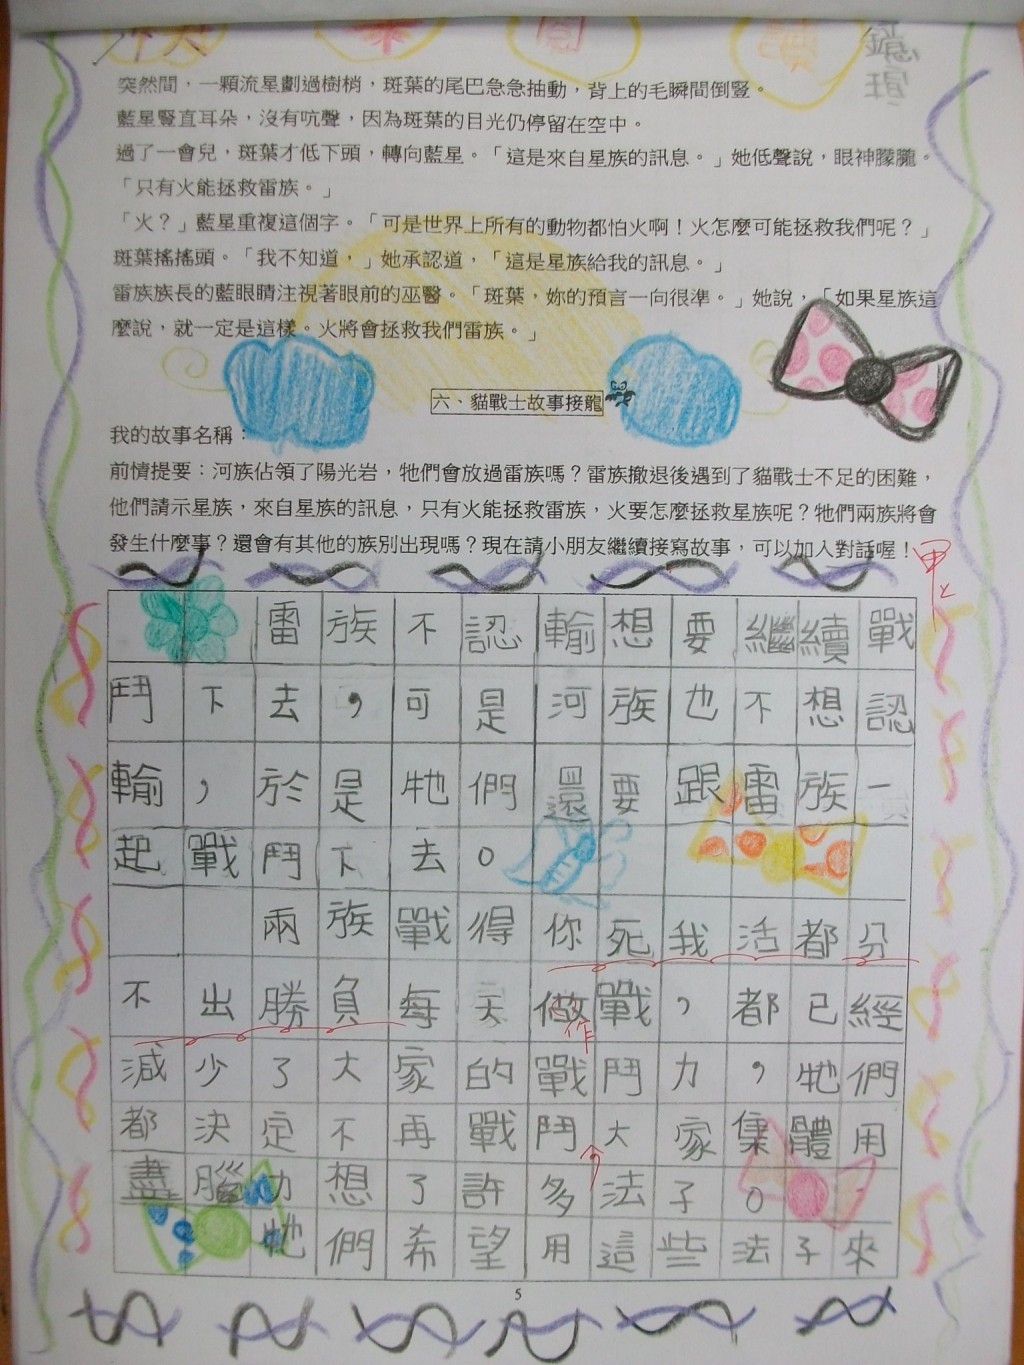 突然間，一顆流星劃過樹梢，斑葉的尾巴急急抽動，背上的毛瞬間倒豎。
藍星豎直耳朵，沒有吭聲，因為斑葉的目光仍停留在空中。
過了一會兒，斑葉才低下頭，轉向藍星。「這是來自星族的訊息。」她低聲說，眼神朦朧。
「只有火能拯救雷族。」
「火？」藍星重複這個字。「可是世界上所有的動物都怕火啊！火怎麼可能拯救我們呢？」
斑葉搖搖頭。「我不知道，」她承認道，「這是星族給我的訊息。」
雷族族長的藍眼睛注視著眼前的巫醫。「斑葉，妳的預言一向很準。」她說，「如果星族這
麼說，就一定是這樣。火將會拯救我們雷族。」
六、貓戰士故事接龍
我的故事名稱：
前情提要：河族佔領了陽光岩，牠們會放過雷族嗎？雷族撤退後遇到了貓戰士不足的困難，
他們請示星族，來自星族的訊息，只有火能拯救雷族，火要怎麼拯救星族呢？牠們兩族將會
發生什麼事？還會有其他的族別出現嗎？現在請小朋友繼續接寫故事，可以加入對話喔！
甲上
雷族不認輸想要繼續戰
鬥下去，可是河族也不想認
輸，於是牠們還要跟雷族一
起戰鬥下去。
兩族戰得你死我活都分
不出勝負每天做戰，都已經
作
減少了大家的戰鬥力，牠們
都決定不再戰鬥大家集體用
，
盡腦力想了許多法子。
牠們希望用這些法子來
5